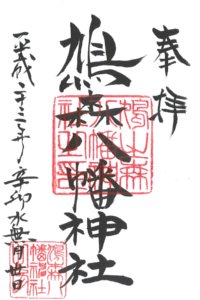 奉拝
鳩森八幡神社
平成二十三年辛卯水無月廿日